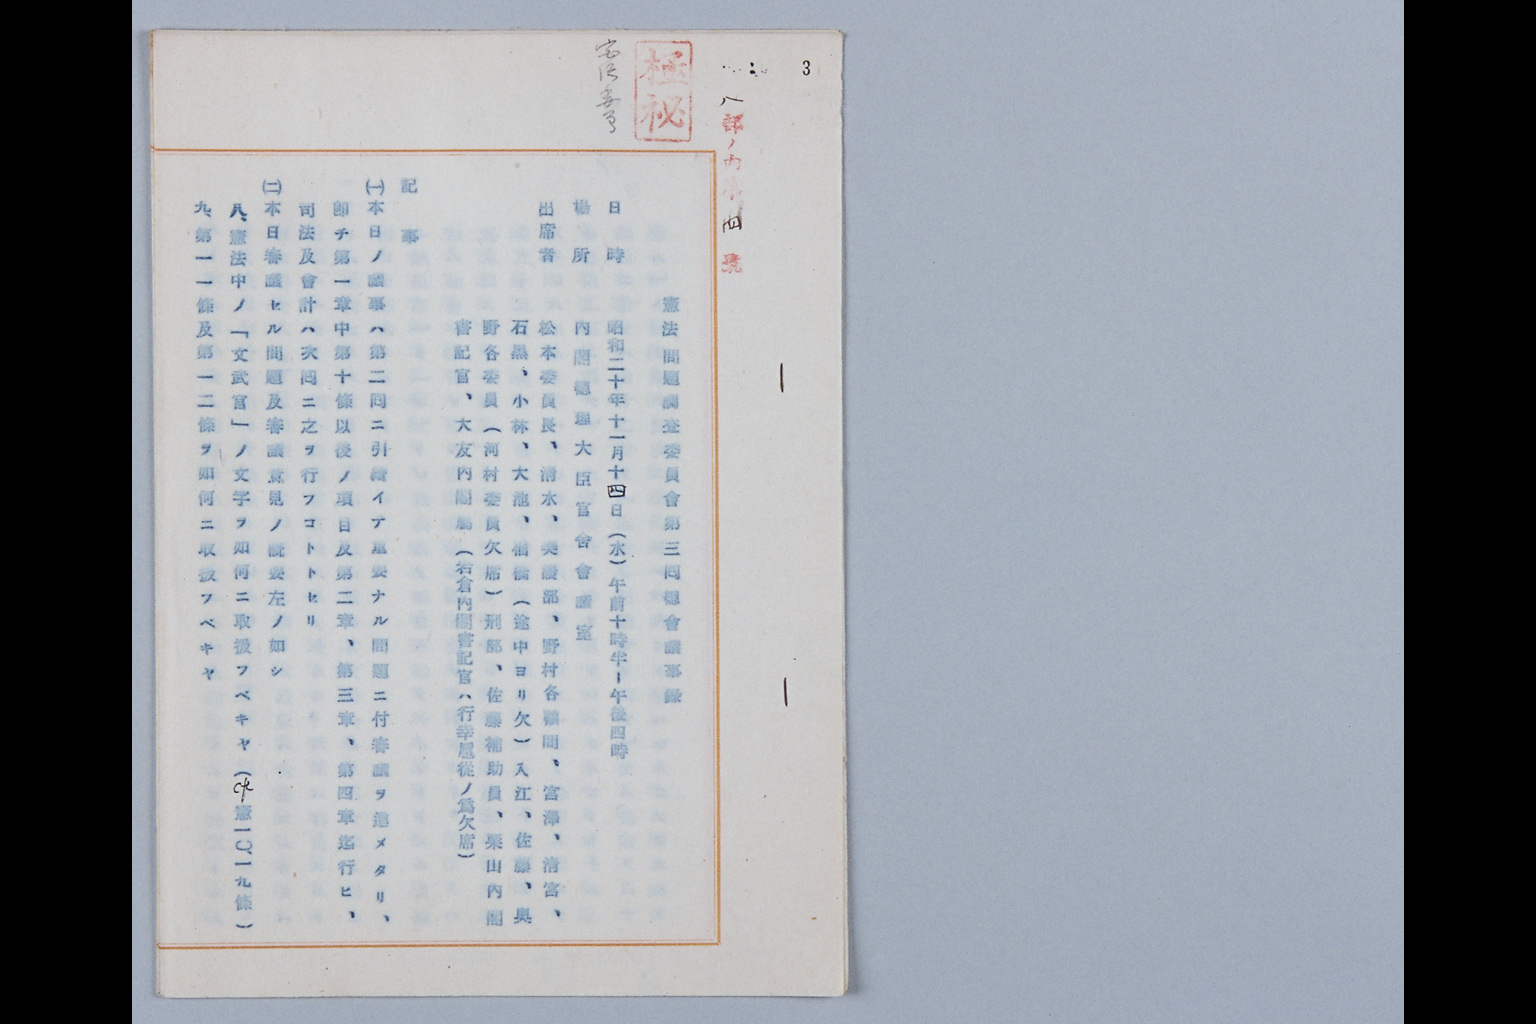 3
極秘
八部ノ内第四號
憲法問題調査委員會第三回總會議事錄
日時 昭和二十年十一月十四日(水)午前十時半ー午後四時
場所 內閣總理大臣官舍會議室
出席者 松本委員長、淸水、美濃部、野村各顧問、宮澤、淸宮、
石黑、小林、大池、楢橋(途中ヨリ欠)入江、佐藤、奧
野各委員(河村委員欠席)刑部、佐藤補助員、栗山內閣
書記官、大友內閣屬(岩倉內閣書記官ハ行幸扈從ノ爲欠席)
記事
㈠本日ノ議事ハ第二回ニ引續イテ重要ナル問題ニ付審議ヲ進メタリ、
卽チ第一章中第十條以後ノ項目及第二章、第三章、第四章迄行ヒ、
司法及會計ハ次回ニ之ヲ行フコトトセリ
㈡本日審議セル問題及審議意見ノ槪要左ノ如シ
八、憲法中ノ「文武官」ノ文字ヲ如何ニ取扱フベキヤ(憲一〇、一九條)
九、第一一條及第一二條ヲ如何ニ取扱フベキヤ